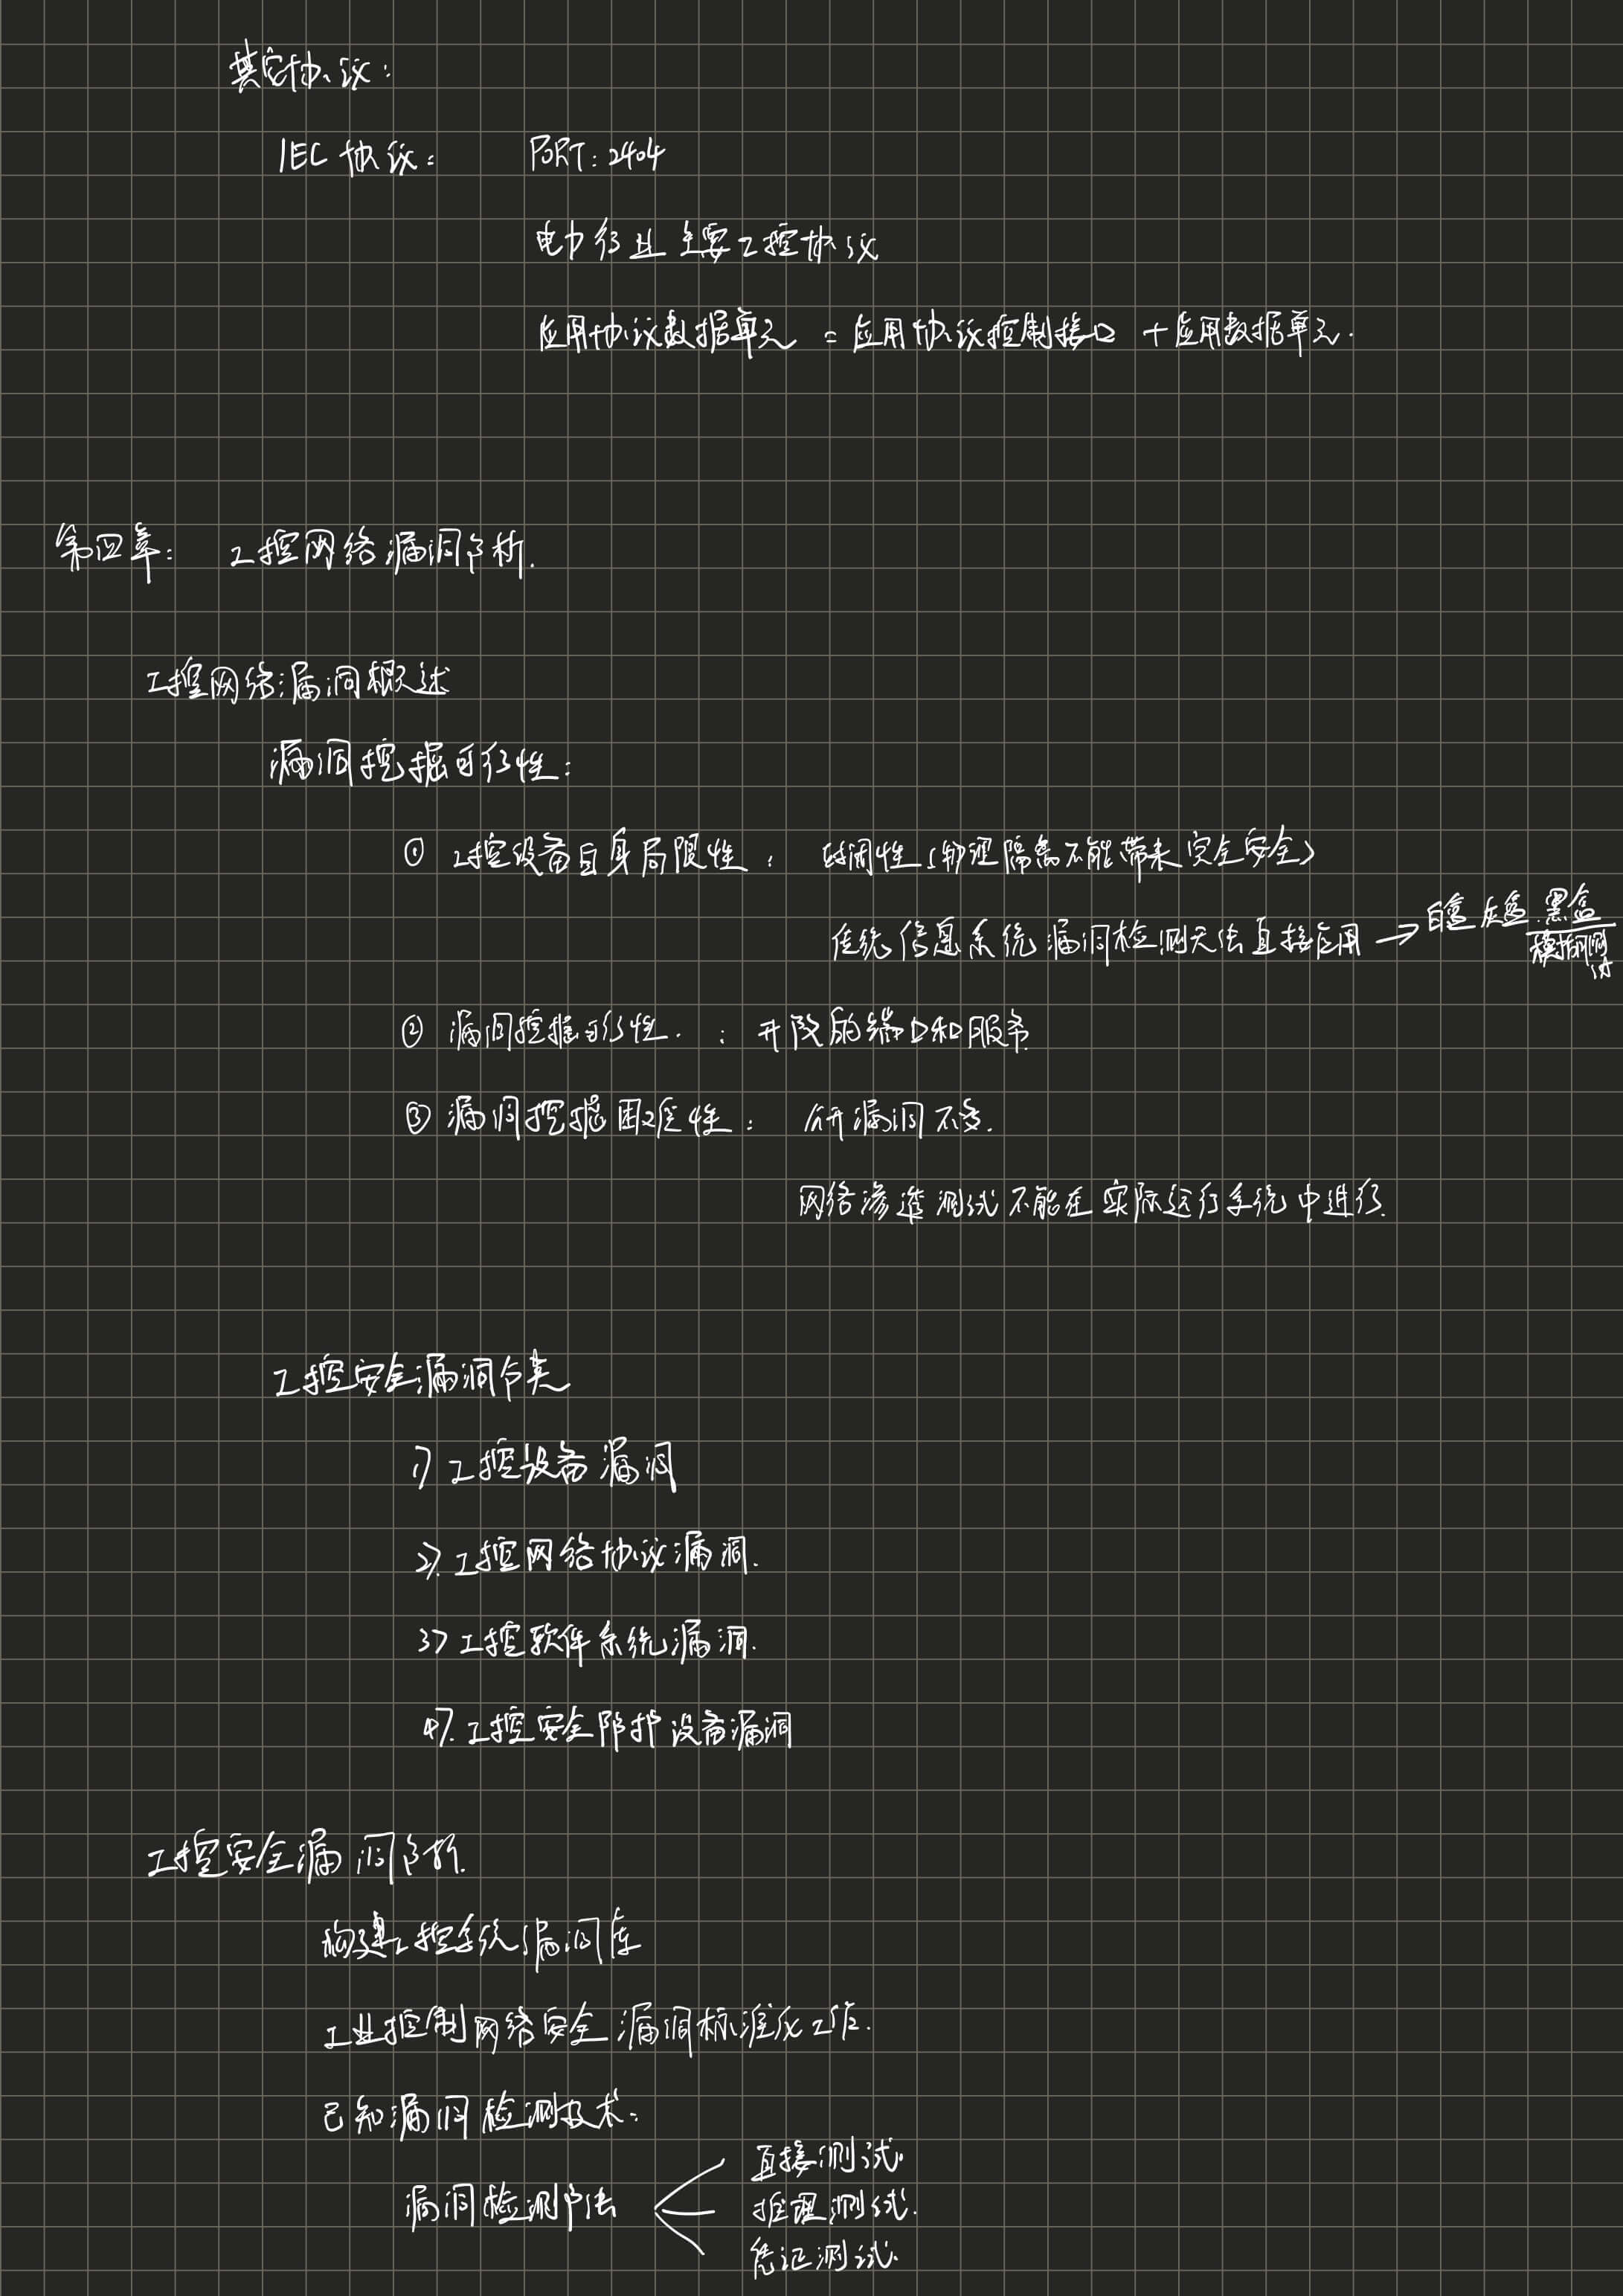 其它协议：
IEC 协议： PORT：2404
电力行业主要工控协议
应用协议数据单元 = 应用协议控制接口 + 应用数据单元.
第四章： 工控网络漏洞分析.
工控网络漏洞概述
漏洞挖掘可行性：
① 工控设备自身局限性： 封闭性（物理隔离不能带来完全安全）
传统信息系统漏洞检测无法直接应用 → 白盒 灰盒 黑盒
② 漏洞挖掘可行性.： 开放的端口和服务
③ 漏洞挖掘困难性： 公开漏洞不多.
网络渗透测试不能在实际运行系统中进行.
工控安全漏洞分类
1) 工控设备漏洞
2). 工控网络协议漏洞.
3) 工控软件系统漏洞.
4). 工控安全防护设备漏洞
工控安全漏洞分析.
构建工控系统漏洞库
工业控制网络安全漏洞标准化工作.
已知漏洞检测技术：
漏洞检测方法
直接测试.
推理测试.
凭证测试.